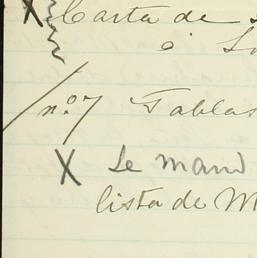 X Carta de
ó
n.º 7 Tablas
X Le mand
lista de M